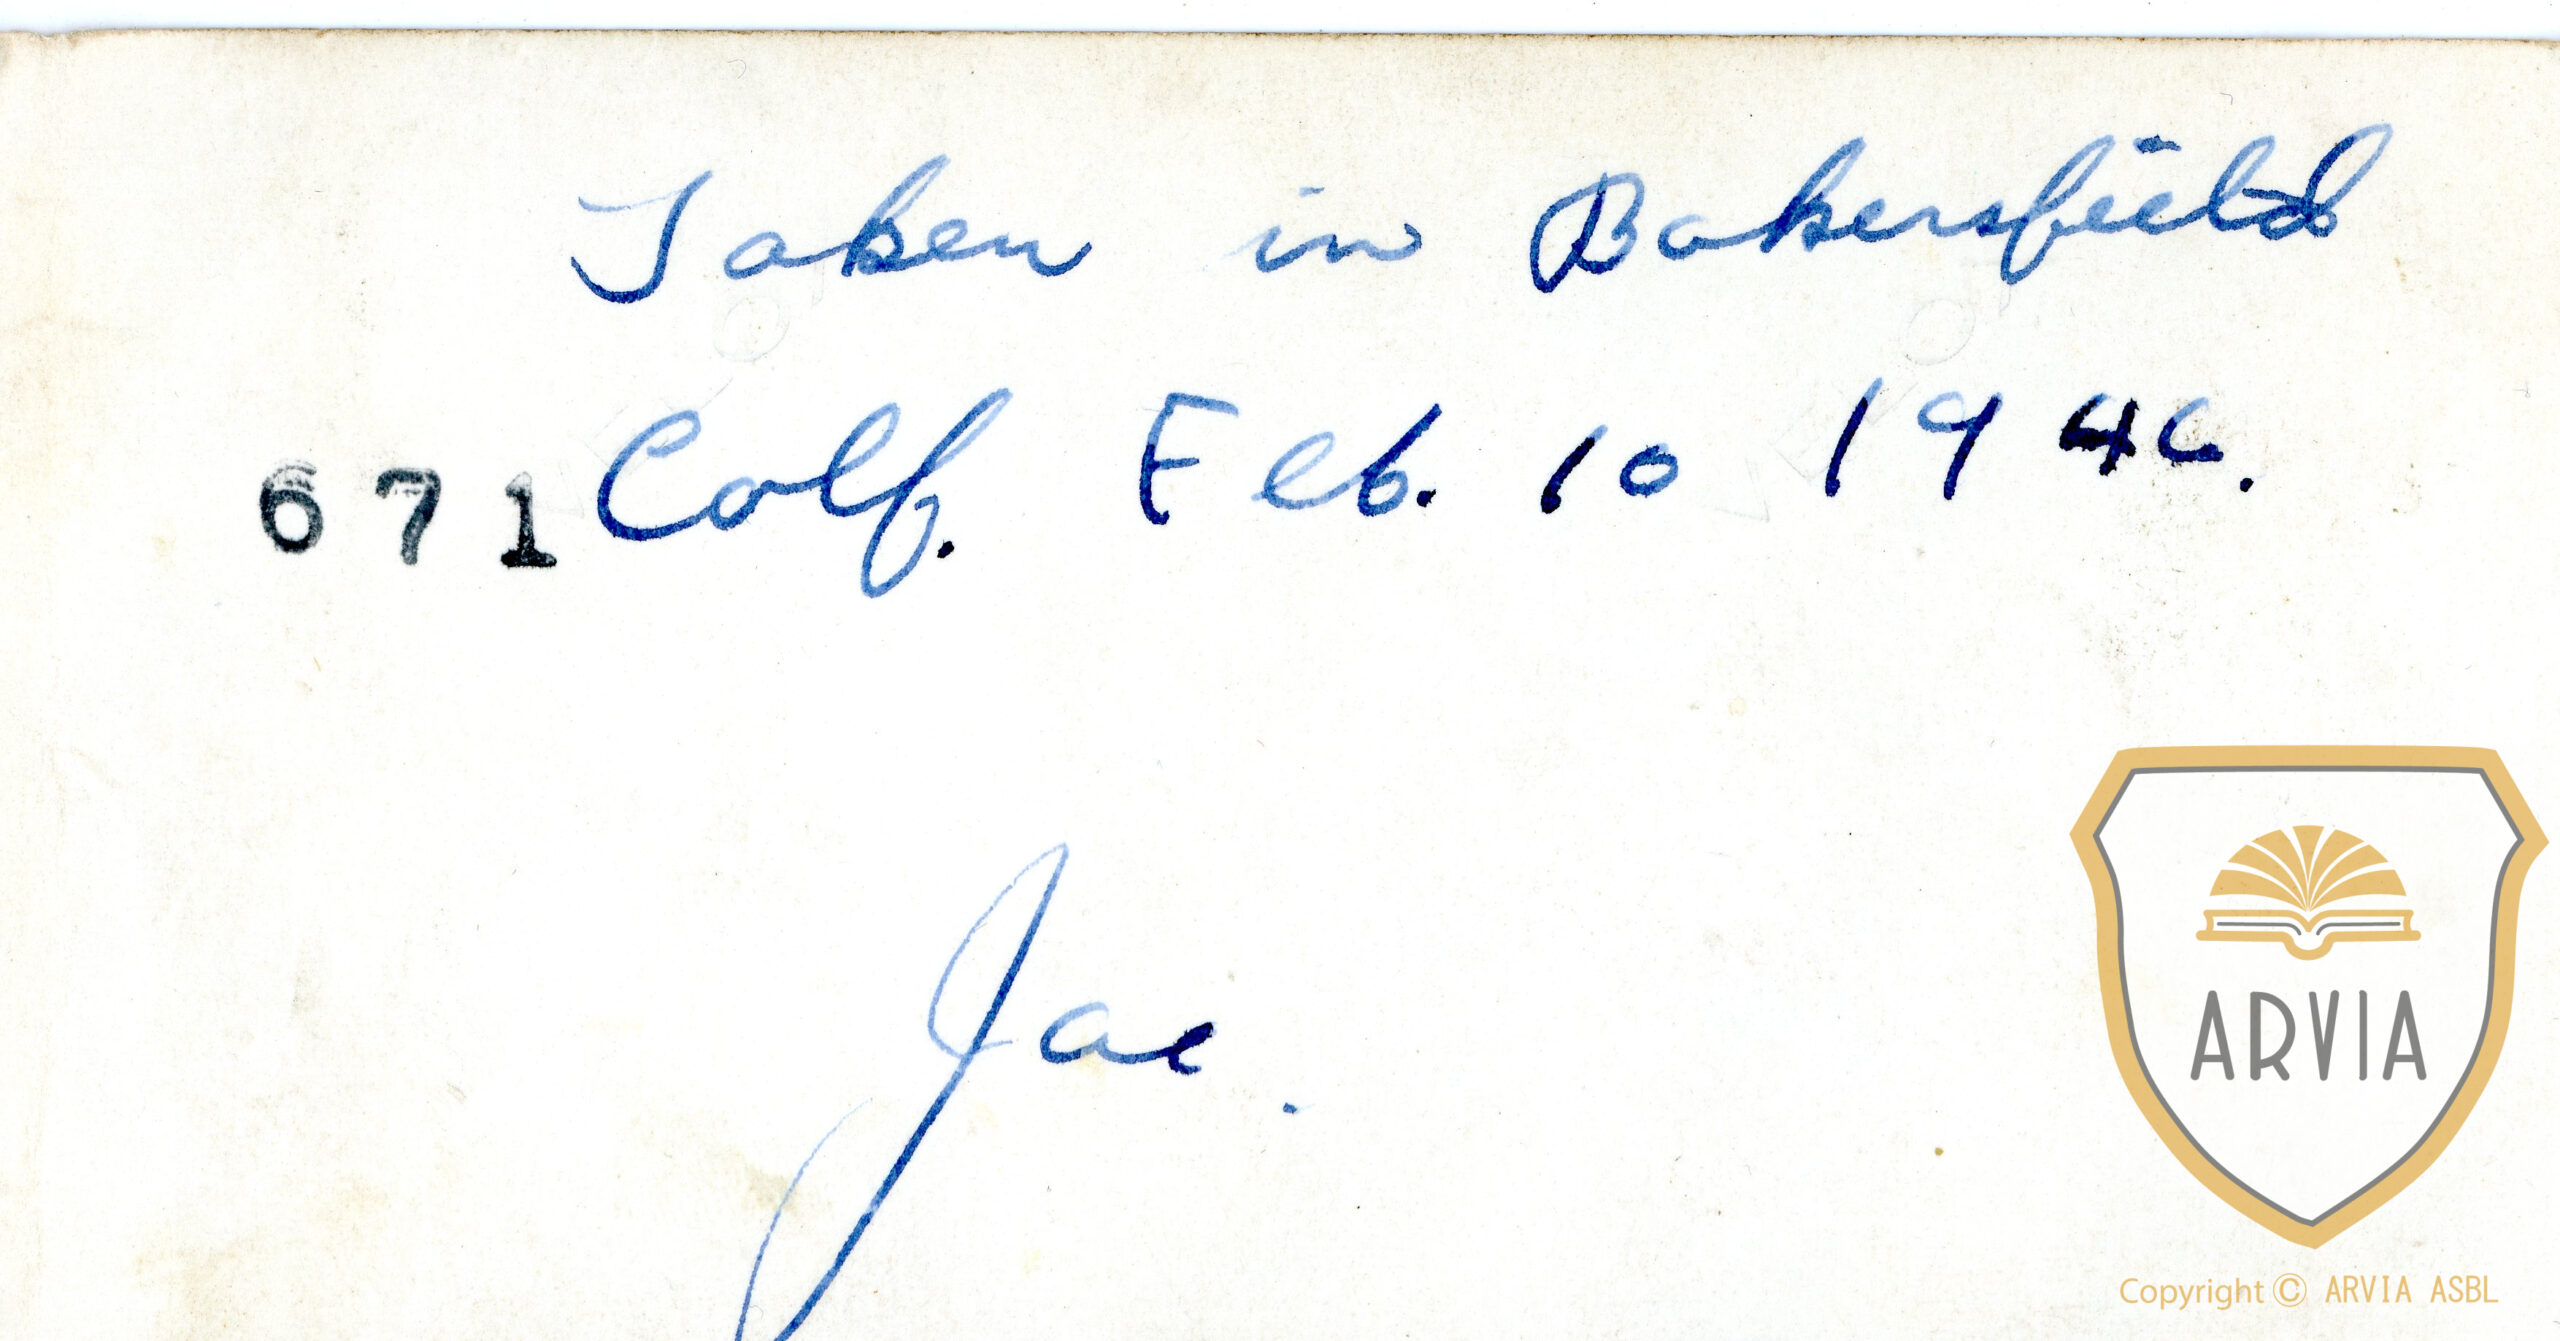 Taken in Bakersfield
671 Calf. Feb. 10 1946.
Jae.
ARVIA
Copyright © ARVIA ASBL